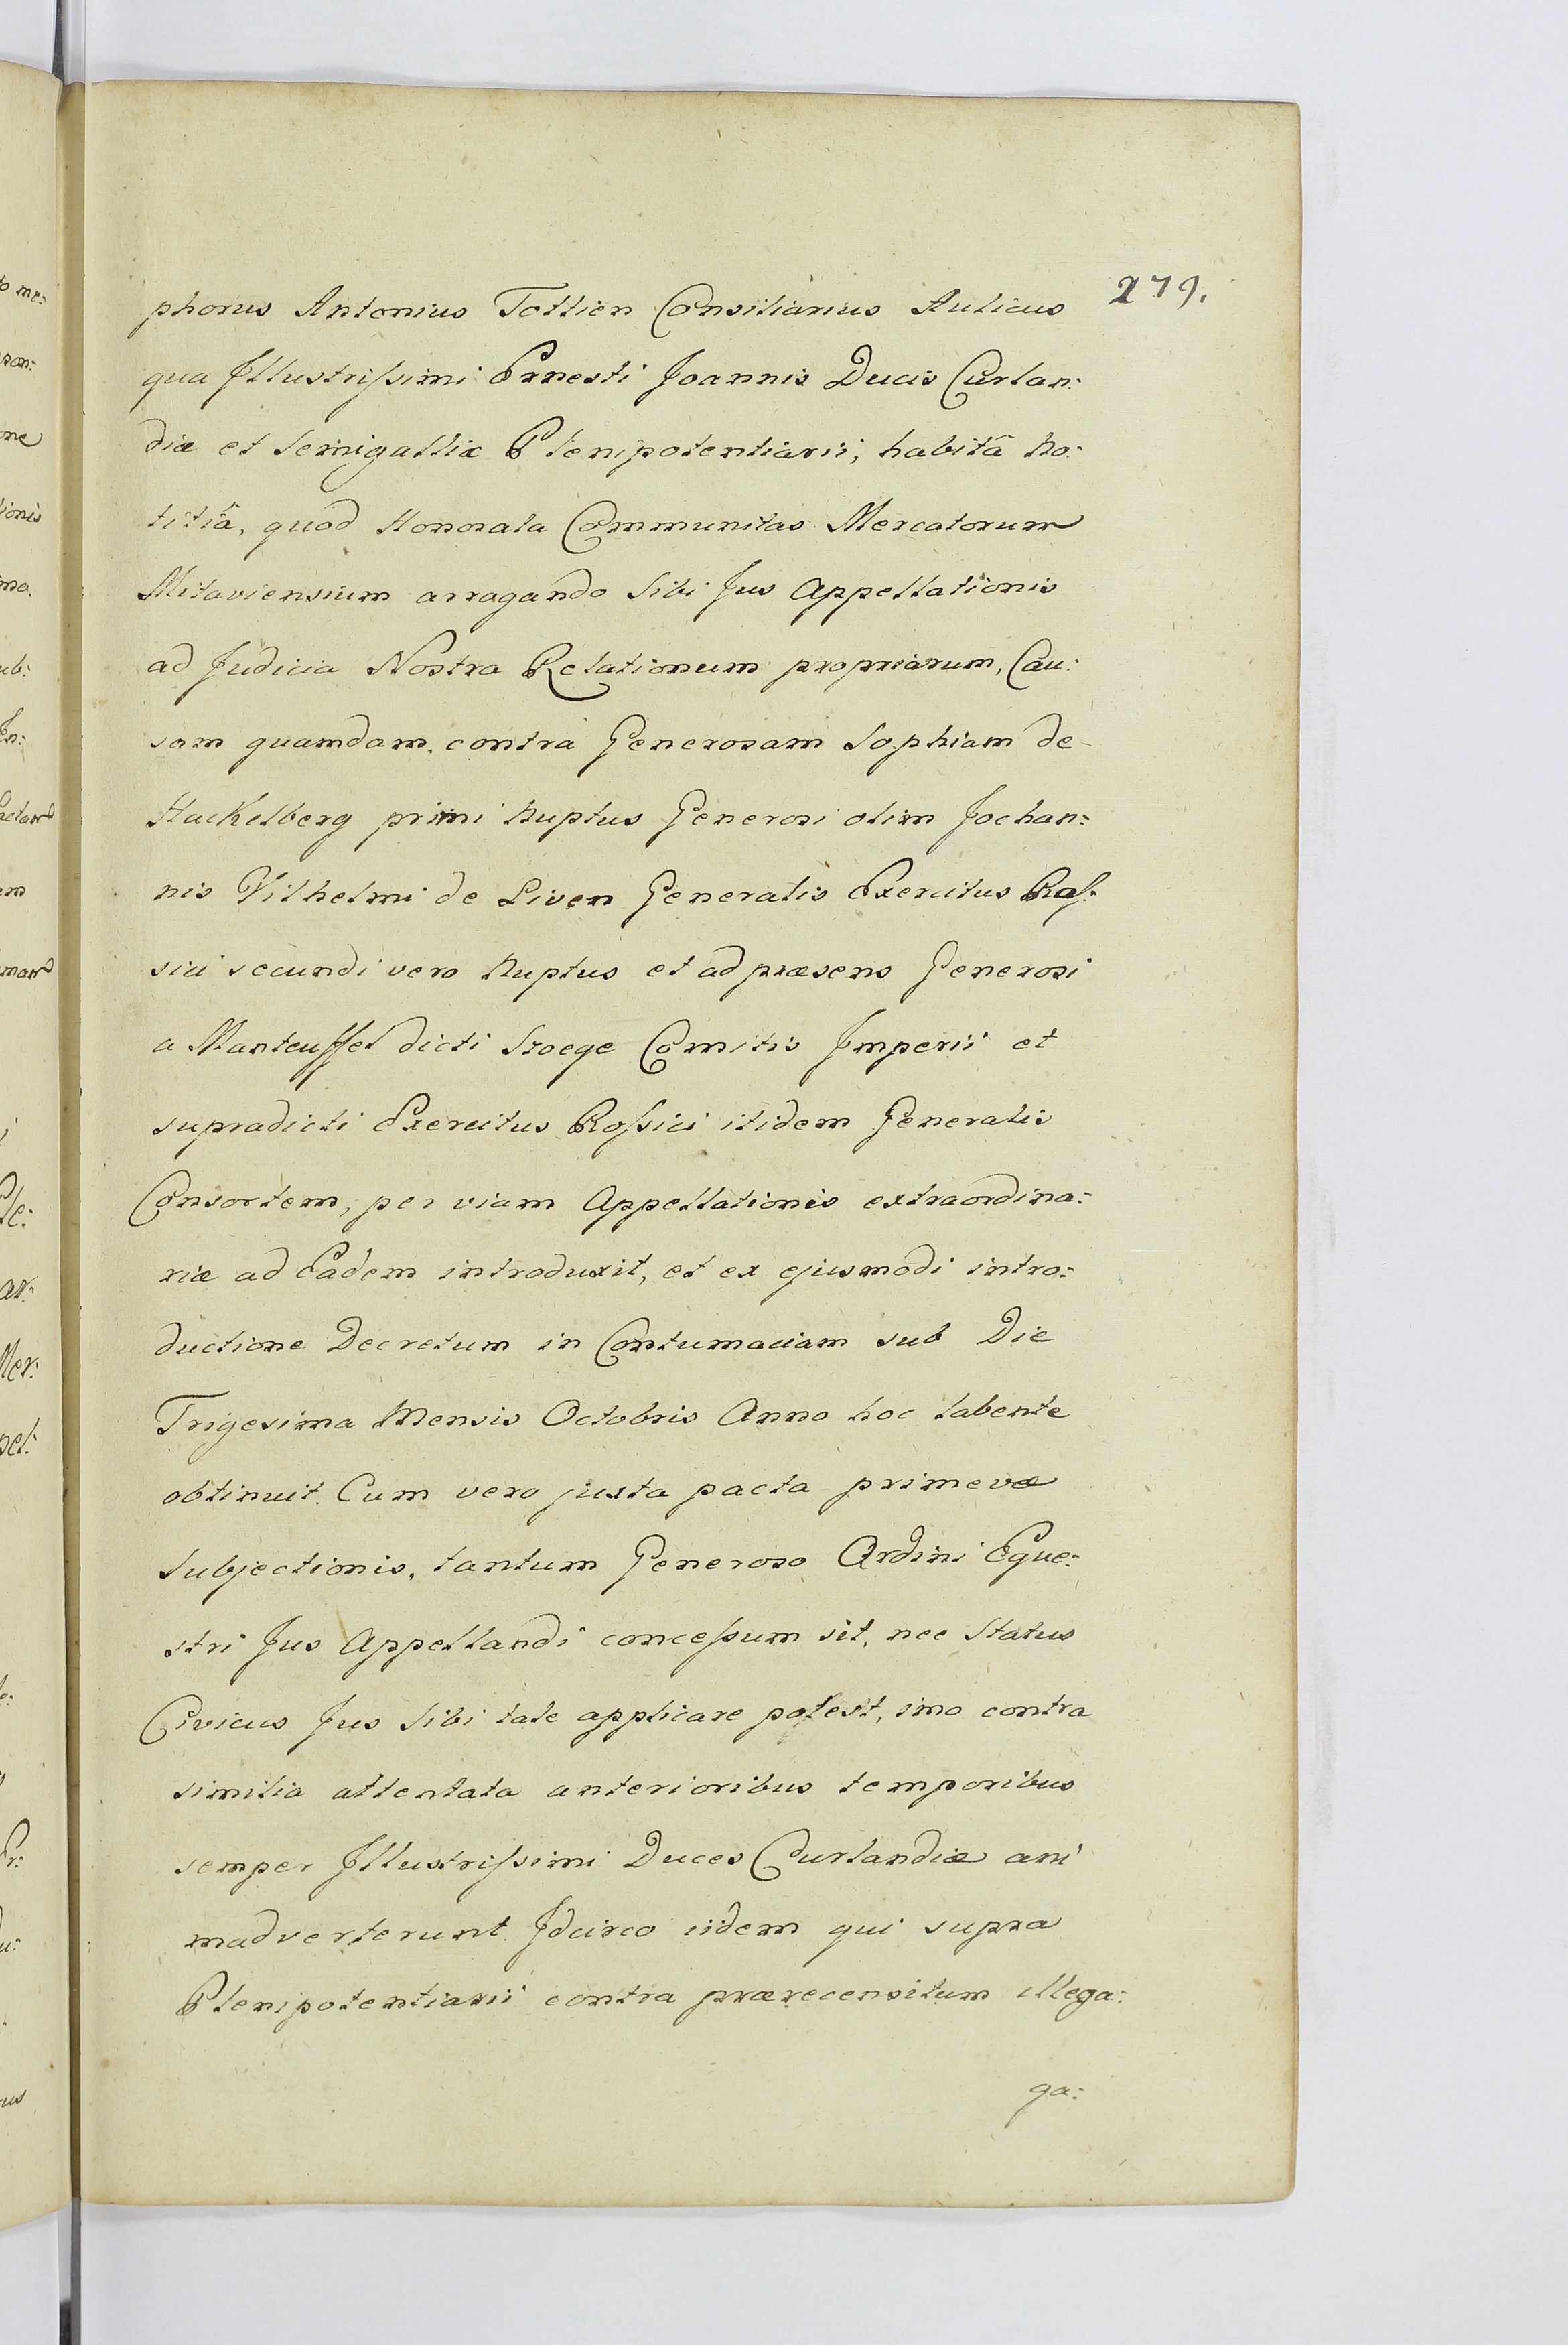 279.
phorus Antonius Tottien Consiliarius Aulicus
qua Illustrißimi Ernesti Joannis Ducis Curlan:
diæ et Semigalliæ Plenipotentiarii, habitâ No:
titiâ, quod Honorata Communitas Mercatorum
Mitaviensium arrogando Sibi Jus Appellationis
ad Judicia Nostra Relationum propriarum, Cau:
sam quamdam, contra Generosam Sophiam de
Stackelberg primi Nuptus Generosi olim Jochan:
nis Vilhelmi de Liven Generalis Exercitus Roſ:
sici secundi vero Nuptus et ad præsens Generosi
a Manteuffel dicti Szoege Comitis Imperii et
supradicti Exercitus Roßici itidem Generalis
Consortem, per viam Appellationis extraordina:
riæ ad Eadem introduxit, et ex ejusmodi intro:
ductione Decretum in Contumaciam sub Die
Trigesima Mensis Octobris Anno hoc labente
obtinuit. Cum vero juxta pacta primevæ
Subjectionis, tantum Generoso Ordini Eque:
stri Jus Appellandi conceßum sit, nec Status
Civicus Jus Sibi tale applicare potest, imo contra
similia attentata anterioribus temporibus
semper Illustrißimi Duces Curlandiæ ani
madverterunt. Idcirco iidem qui supra
Plenipotentiarii contra prærecensitum illega:
ga: